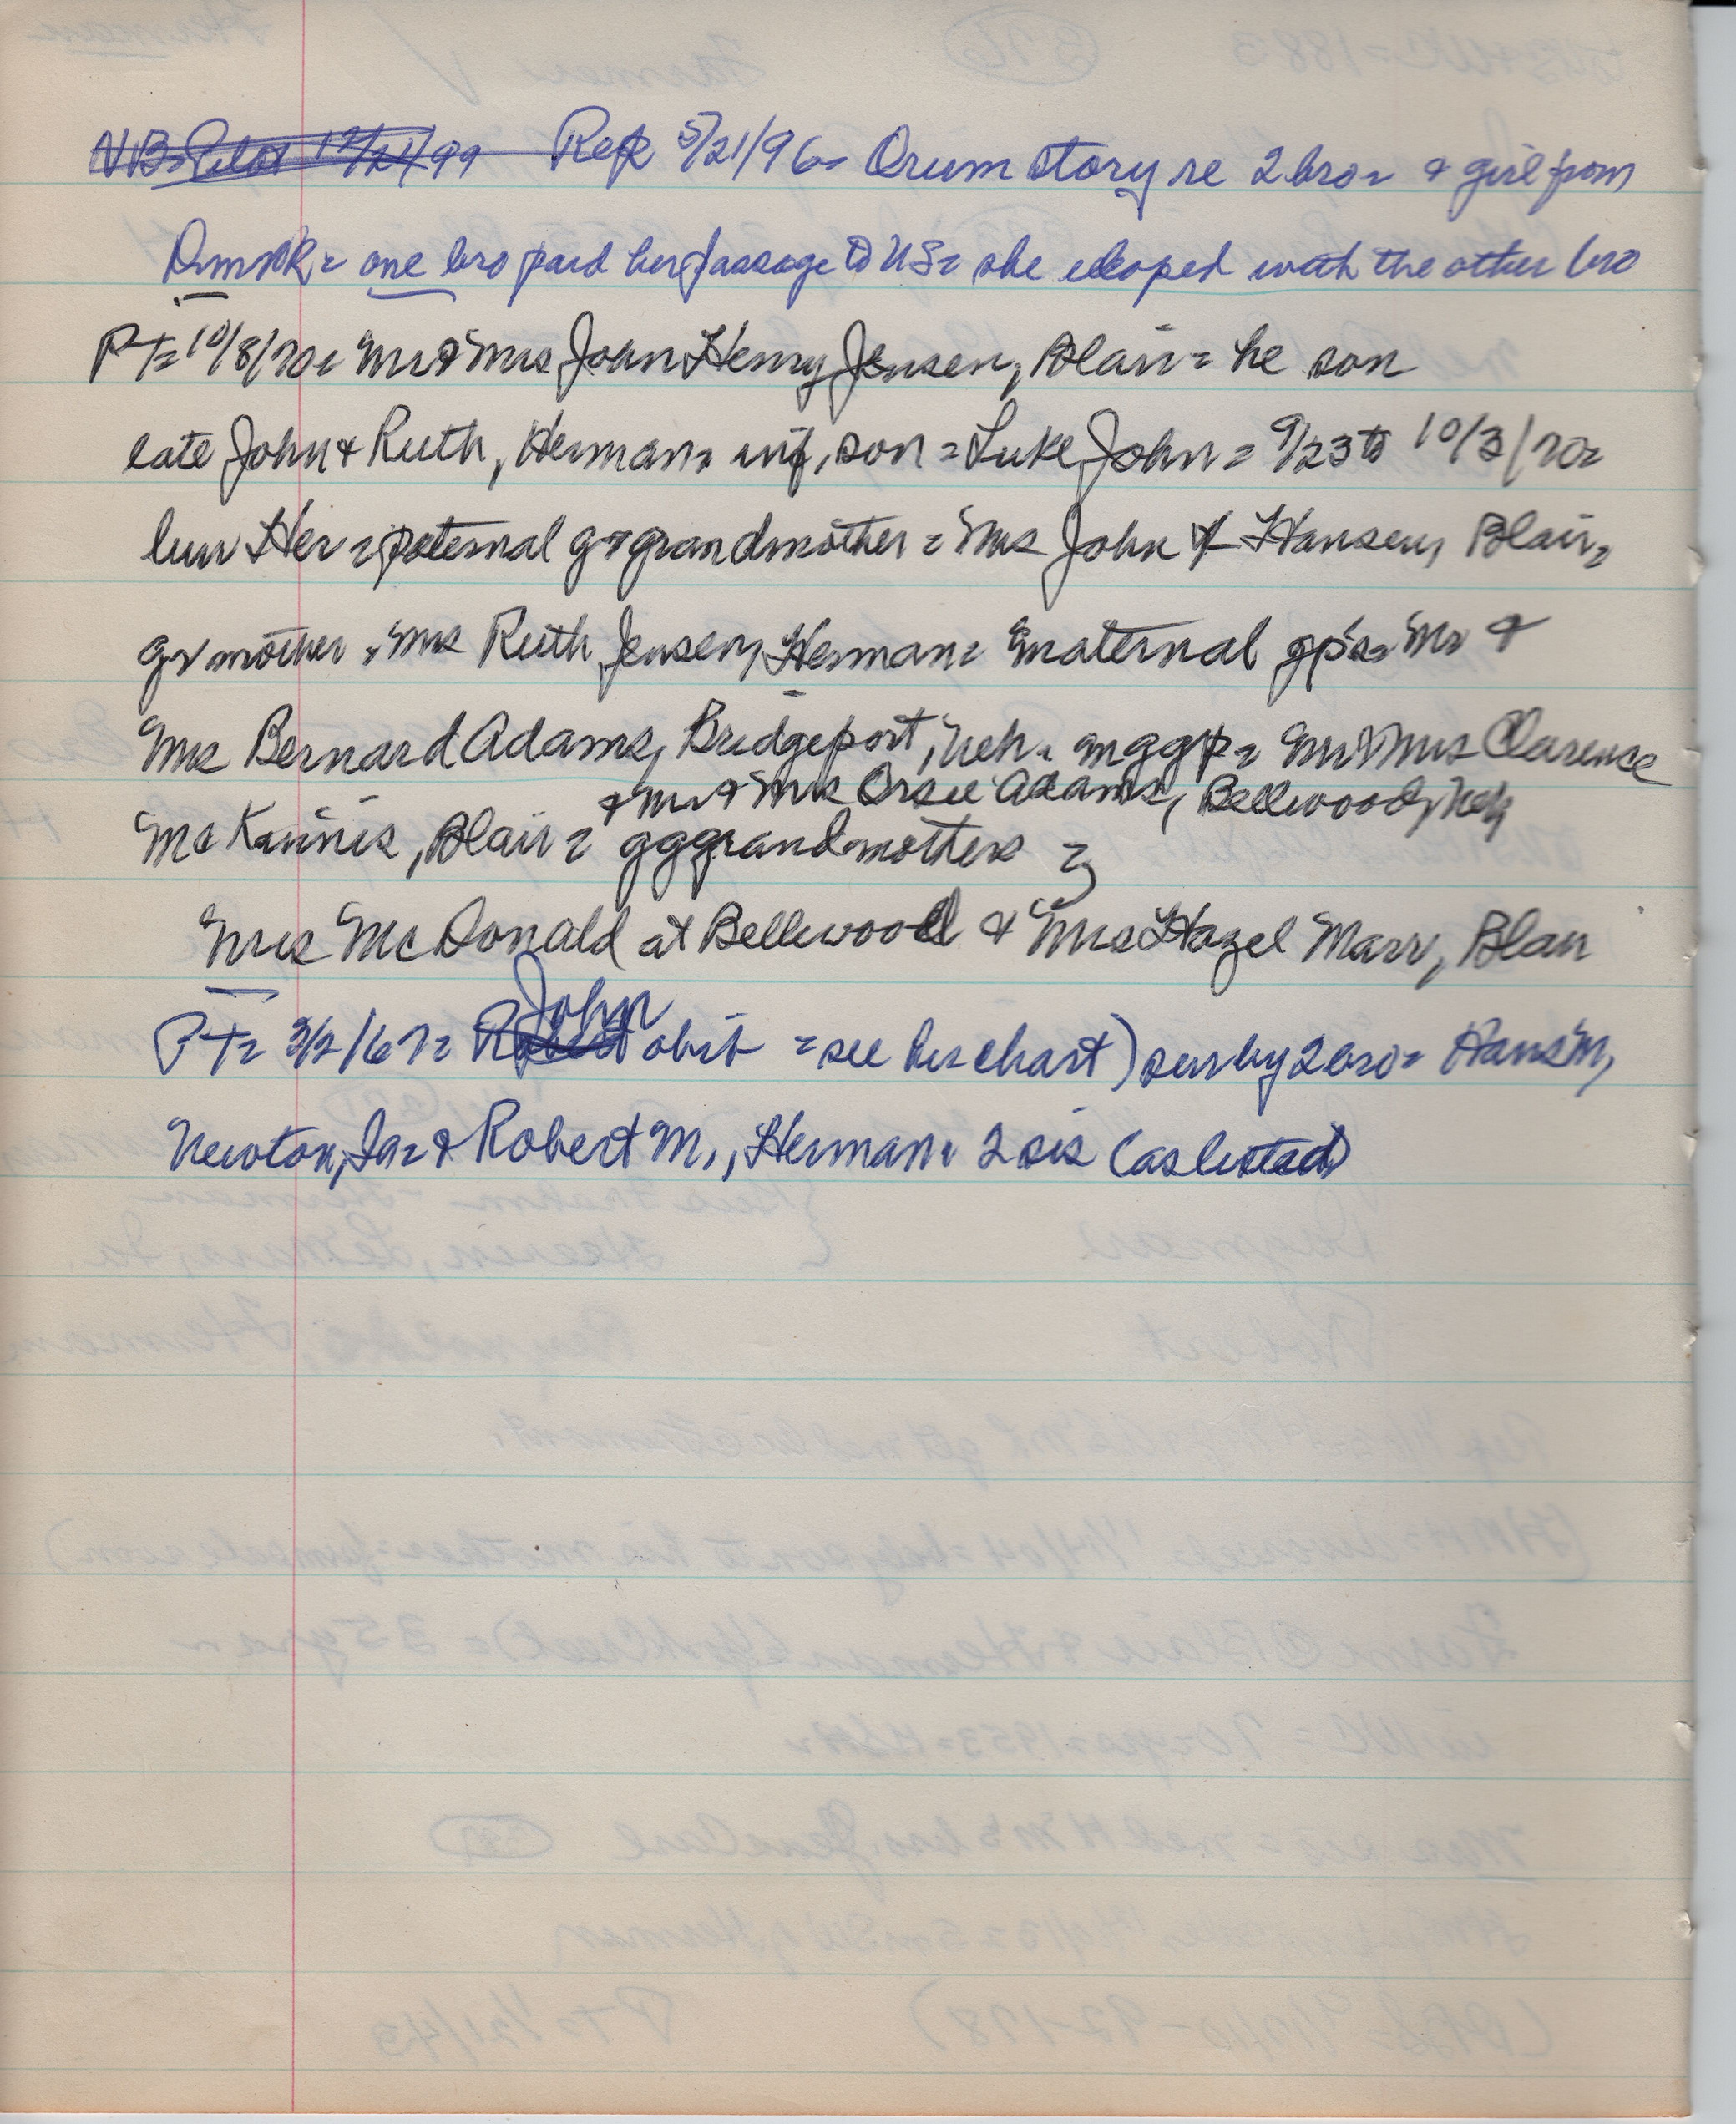 NB= Pilot 12/21/99 Rep 5/21/96= Orum story re 2 bro= & girl from
Dmrk= one bro paid her passage to US= she eloped with the other bro
PT= 10/8/70= Mr & Mrs John Henry Jensen, Blair= he son
late John & Ruth, Herman= inf. son= Luke John= 9/23 to 10/3/70=
bur Her= paternal grgrandmother= Mrs John Hansen, Blair=
grmother= Mrs Ruth Jensen, Herman= maternal gp's= Mr &
Mrs Bernard Adams, Bridgeport, Neb= mggp= Mr & Mrs Clarence
& Mr & Mrs Adams, Bellwood, Neb
Mc Blair= gggrandmothers=
Mrs McDonald at Bellwood & Mrs Hazel Marr, Blair
John
PT= 3/2/67= Robert obit =see his chart) sur by 2 bro= Hans M,
Newton, Ia= & Robert M., Herman= 2 sis (as listed)